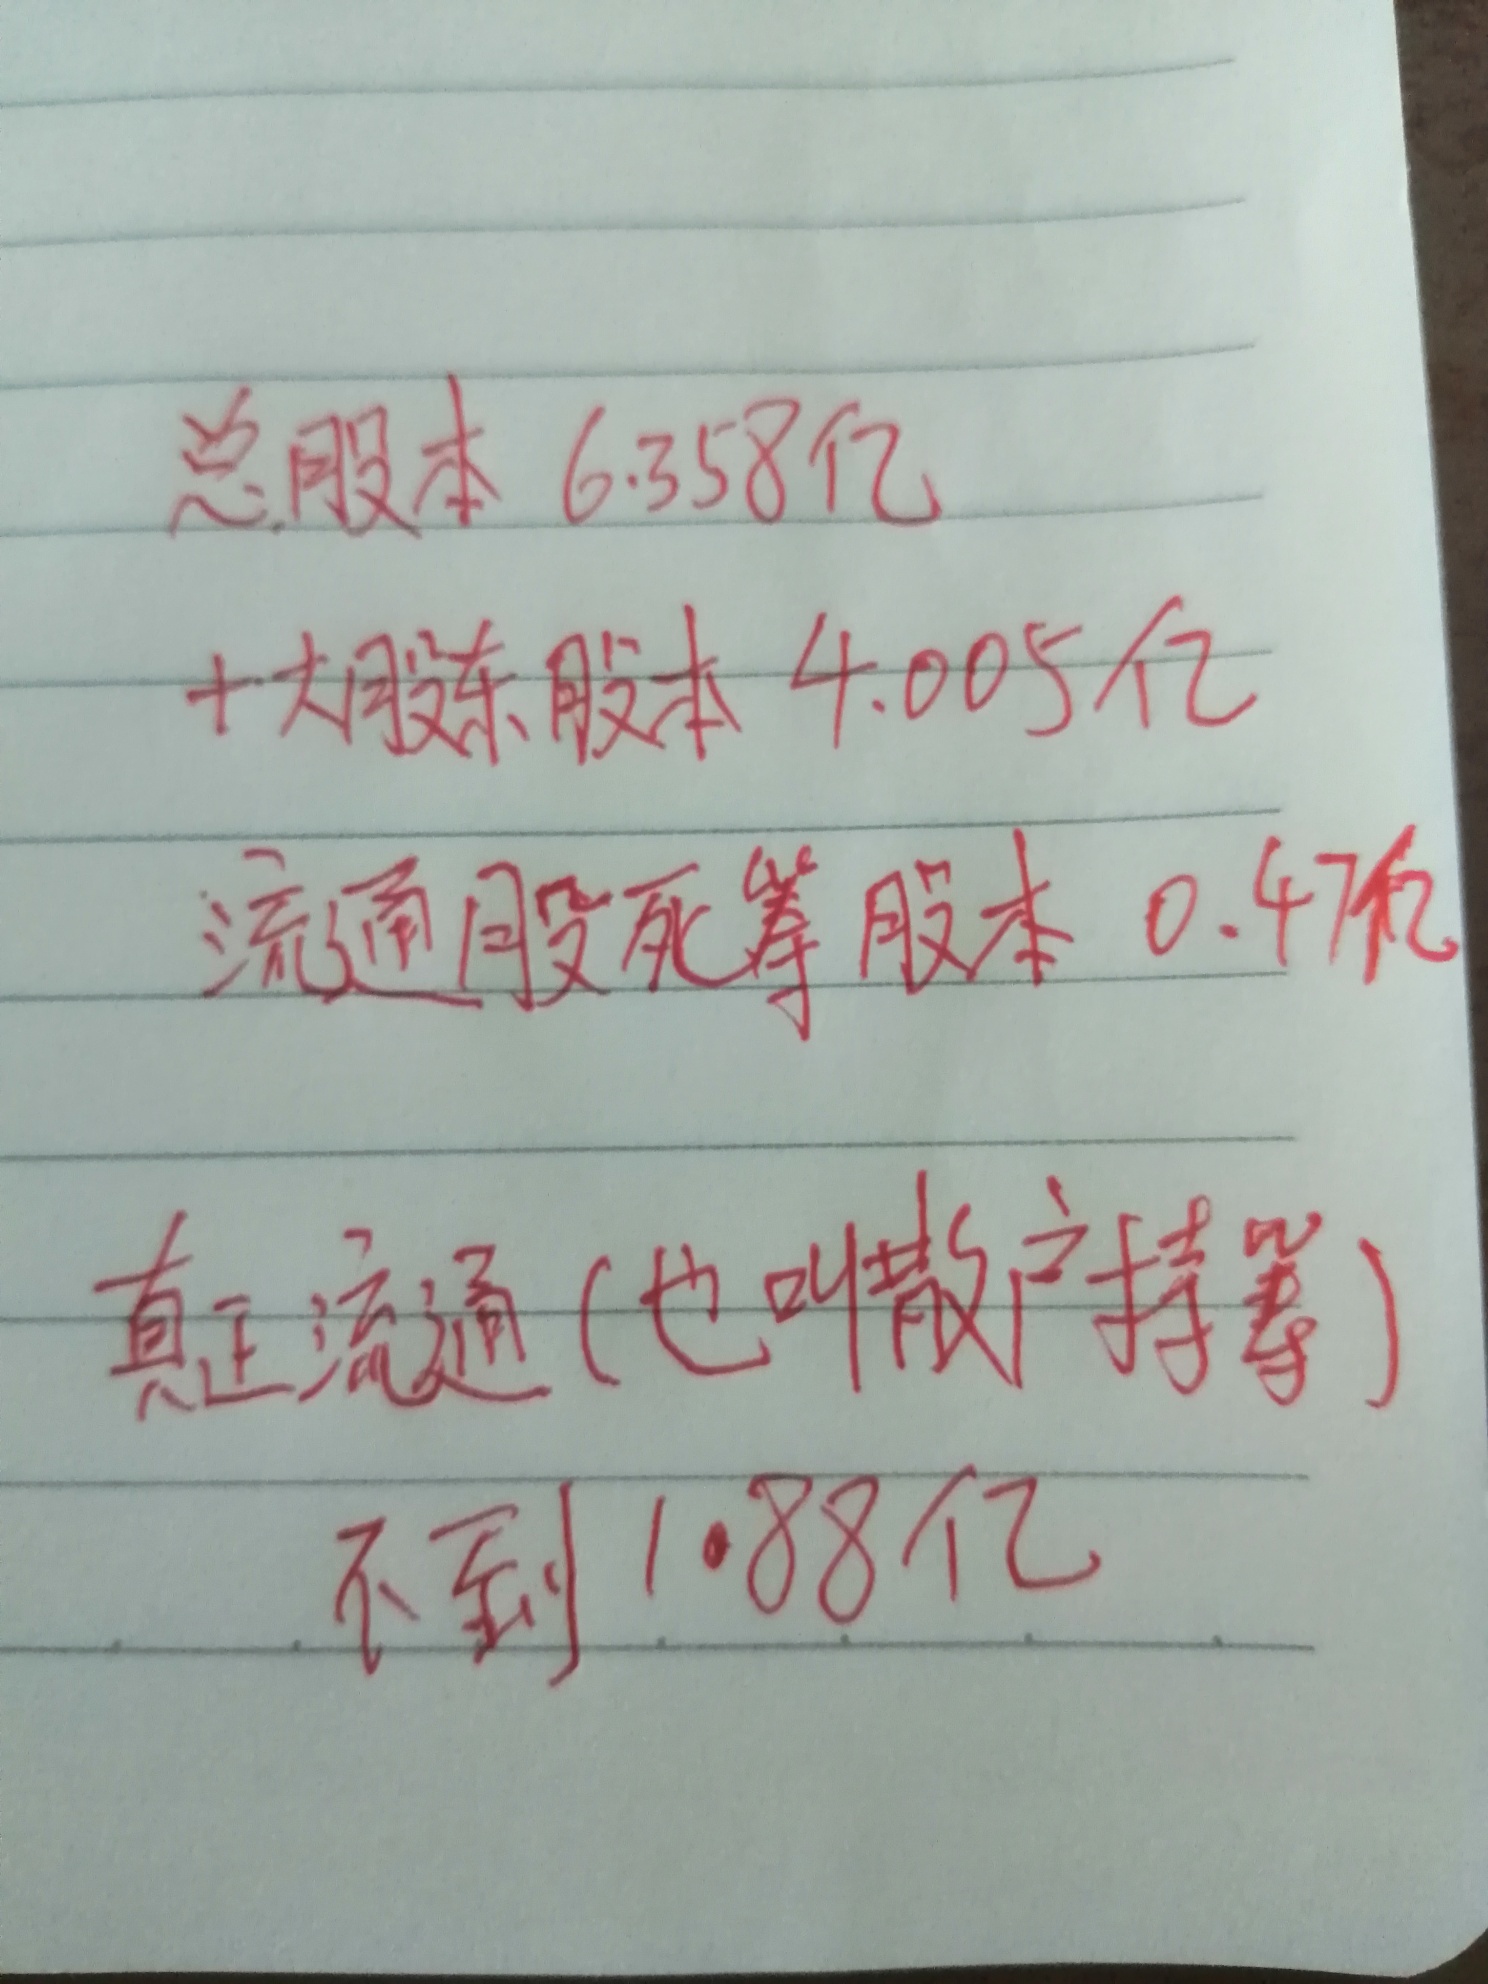 总股本 6.358亿
十大股东股本 4.005亿
流通股死筹股本 0.47亿
真正流通(也叫散户持筹)
不到1.88亿